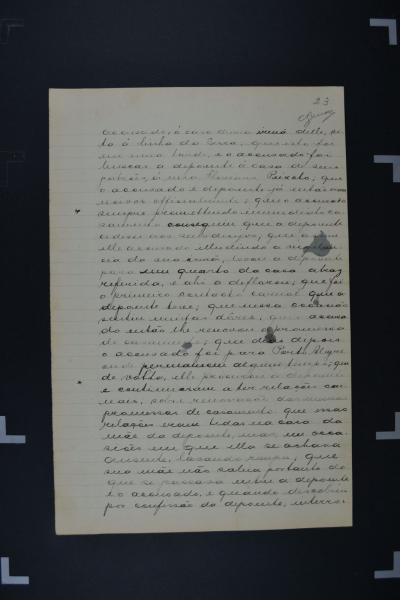 23
accusado, á casa duma irmã delle, per-
to á linha do Cerco; que isto foi
em uma tarde, e o accusado foi
buscar a depoente á casa de seus
patrões, á rua Floriano Peixoto; que
o accusado e depoente já então eram
noivos officialmente; que o accusado
sempre promettendo casa-
samento conseguiu que a depoente
que o
elle accusado illudindo a vigilan-
cia da sua irmã, levou a depoente
para um quarto da casa atraz
referida, e ahi a deflorou; que foi
o primeiro contacto carnal que a
depoente teve; que nessa occasião
sentiu muitas dôres, que o accusa-
do então lhe renovou a promessa
de casamento; que dias depois
o accusado foi para Porto Alegre
onde permaneceu algum tempo; que
de volta, elle procurou a depoente
e continuaram a ter relações car-
naes, sob renovação das mesmas
promessas de casamento que essas
relações eram tidas na casa da
mãe da depoente, mas em occa-
siões em que ella se achava
ausente, lavando roupa; que
sua mãe não sabia portanto do
que se passava entre a depoente
e o accusado, e quando descobriu
por confissão da depoente, interro-